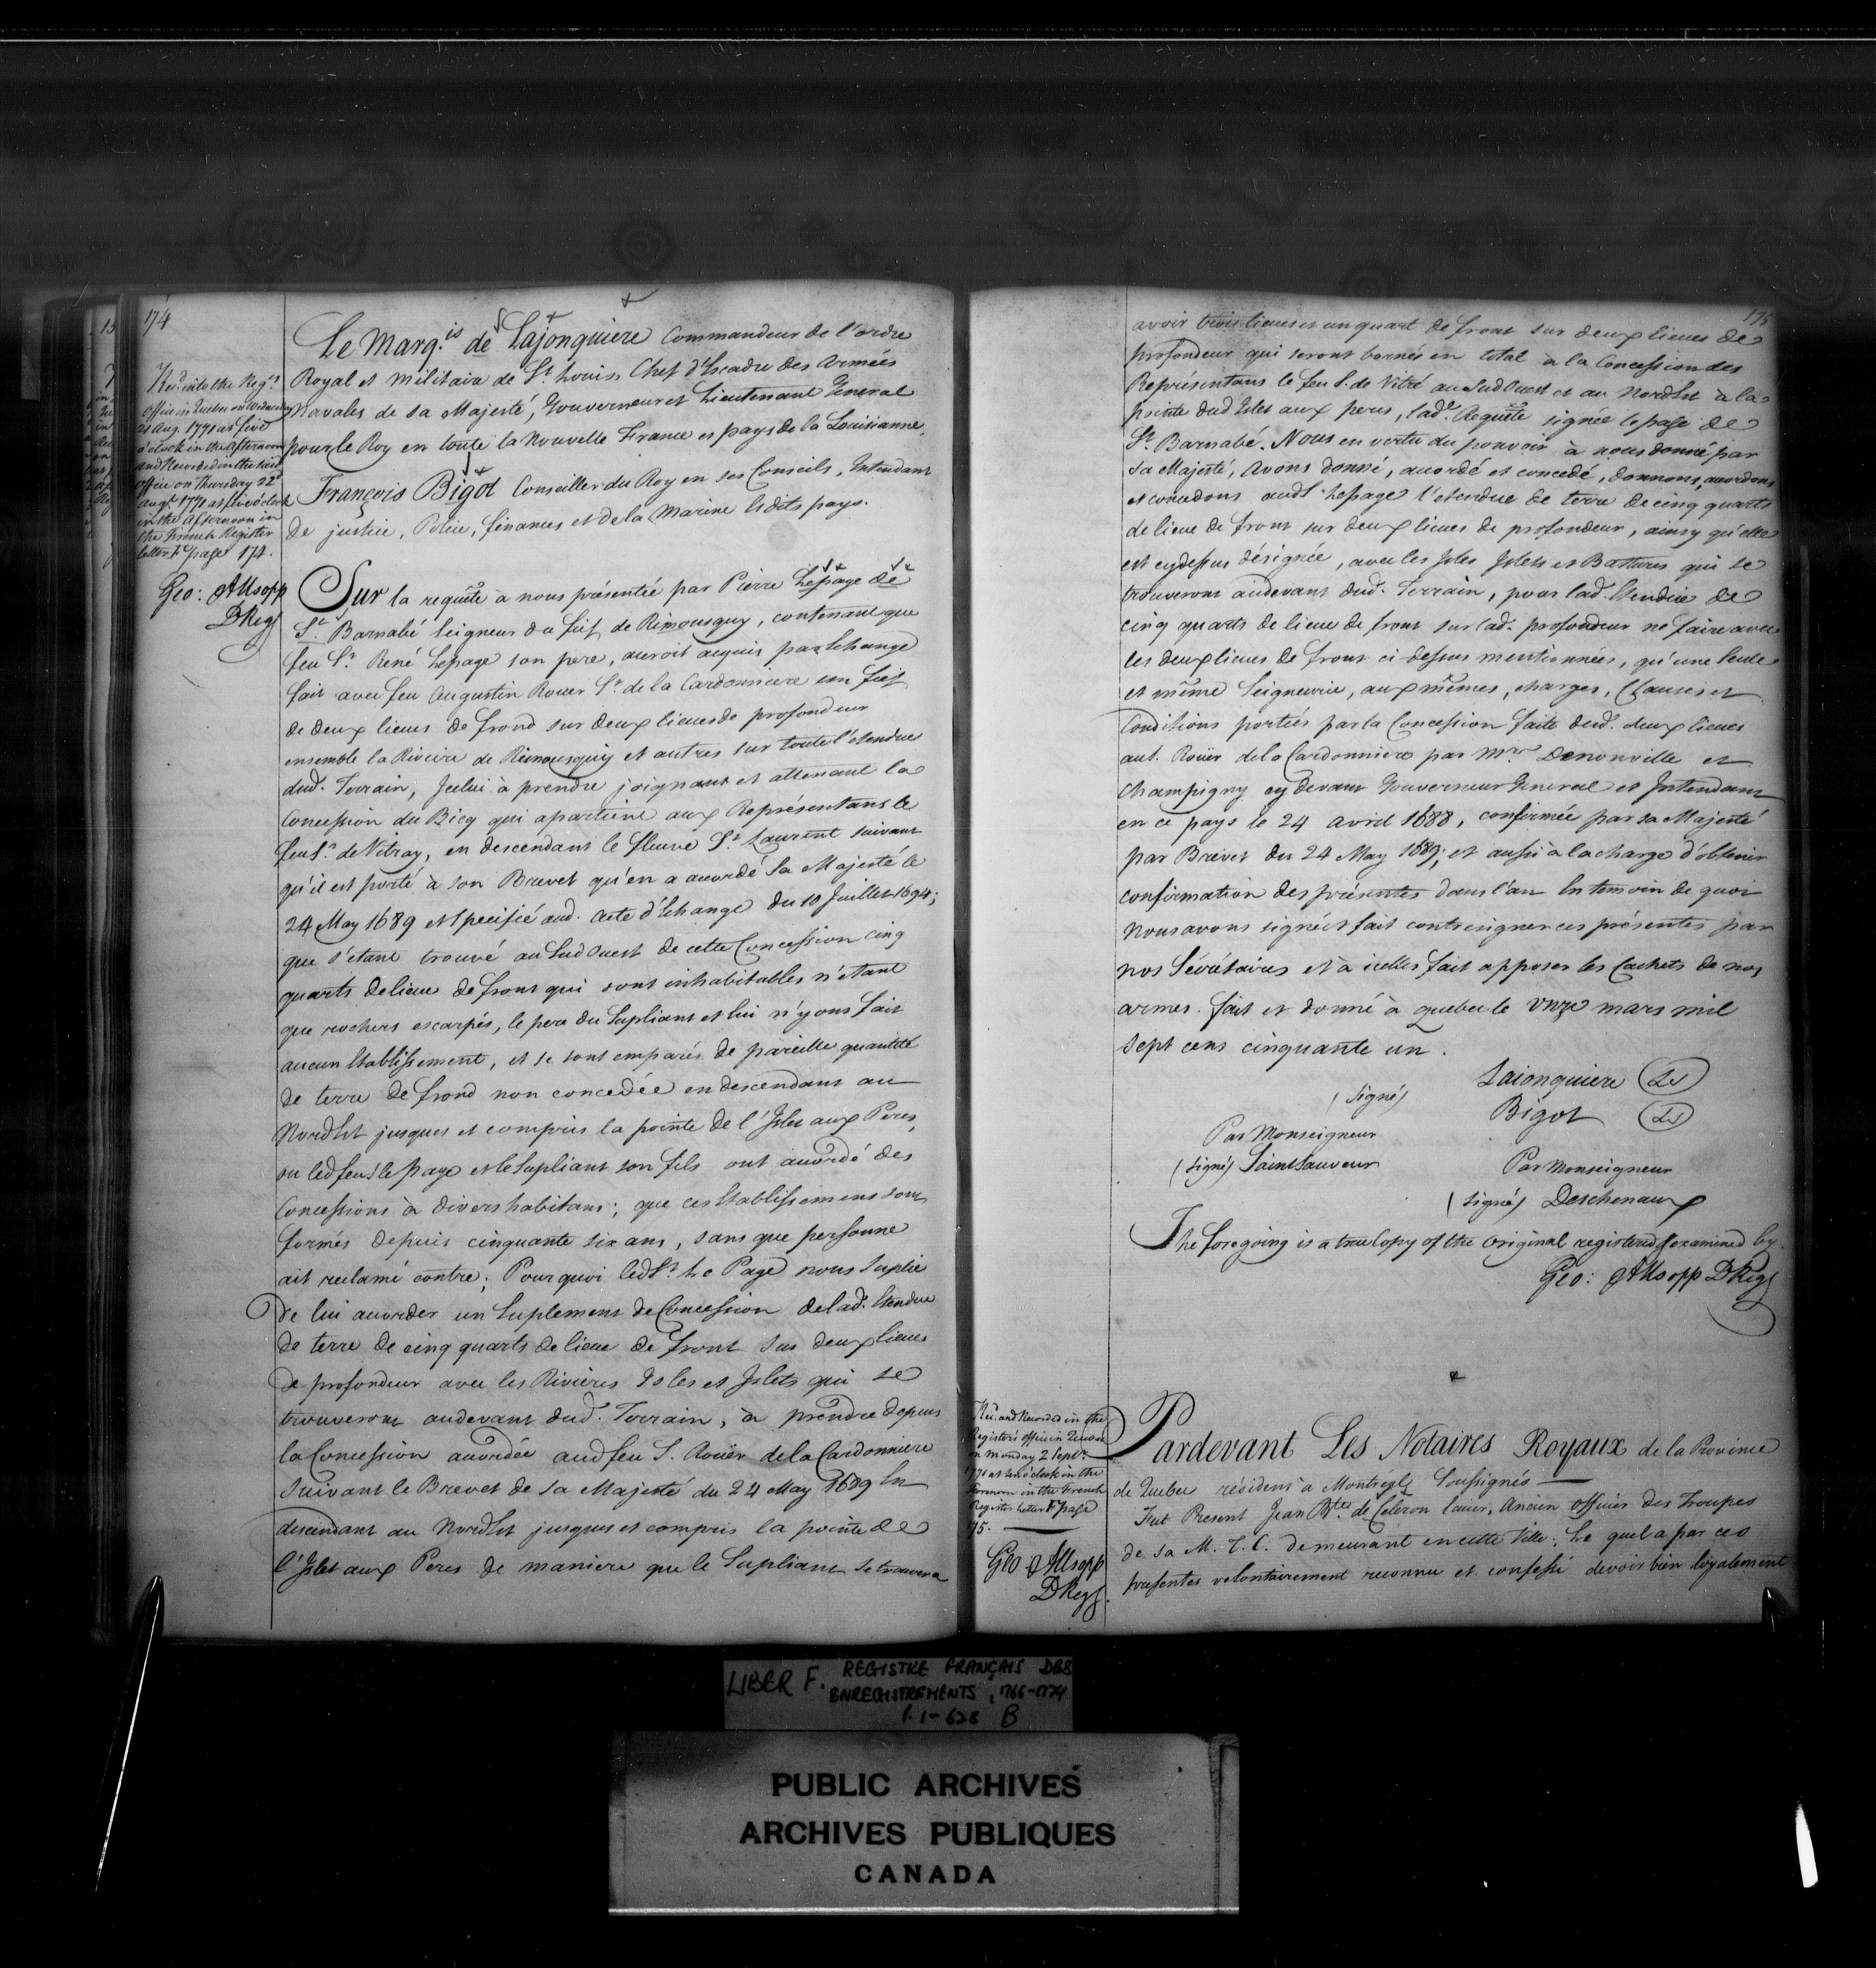 174
Rec'd into the Reg.rs
Office in Quebec on Wednesday
21 Aug. 1771 at five
o'clock in the Afternoon
and Recorded in the said
Office on Thursday 22d
Augt. 1771 at five o'clock
in the Afternoon in
the French Register
letter F page 174.
Geo: Allsopp
DReg
Le Marq.is de Lajonquiere Commandeur de l'ordre
Royal et militaire de St. Louis, Chef d'Escadre des Armées
Navales de sa Majesté, Gouverneur et Lieutenant General
pour le Roy en toute la Nouvelle France et pays de la Louisianne.
François Bigot Conseiller du Roy en ses Conseils, Intendant
de justice, Police, finances et de la Marine esdits pays.
Sur la requête à nous présentée par Pierre Lepage de
St. Barnabé Seigneur du fief de Rimousquy, contenant que
feu Sr. René Lepage son pere, auroit acquis par Echange
fait avec feu Augustin Rouer Sr. de la Cardonniere un fief
de deux lieues de frond sur deux lieues de profondeur
ensemble la Riviere de Rimousquy et autres sur toute l'etendue
dud. Terrain, Jcelui à prendre joignant et attenant la
Concession du Bicq qui apartient aux Représentans le
feu Sr. de Vitray, en descendant le fleuve St. Laurent suivant
qu'il est porté à son Brevet qu'en a accordé Sa Majesté le
24 May 1689 et specifié aud. acte d'Echange du 10 Juillet 1694;
que s'étant trouvé au Sud Ouest de cette Concession cinq
quarts de lieue de front qui sont inhabitables n'étant
que rochers escarpés, le pere du Supliant et lui n'y ons fait
aucun Etablissement, et se sont emparés de pareille quantité
de terre de frond non concedée en descendant au
Nord Est jusques et compris la pointe de l'Jslet aux Peres,
ou led feu S. le page et le Supliant son fils ont accordé des
Concessions à divers habitans; que ces Etablissemens sont
formés depuis cinquante six ans, sans que personne
ait reclamé contre; Pourquoi led Sr. Le Page nous suplie
De lui accorder un Suplement de Concession de lad. Etendue
de terre de cinq quarts de lieue de front sur deux lieues
de profondeur avec les Rivieres Isles et Jslets qui se
trouveront audevant dud. Terrain, à prendre depuis
la Concession accordée aud feu S. Rouër de la Cardonniere
suivant le Brevet de Sa Majesté du 24 May 1689 En
descendant au Nord Est jusques et compris la pointe de
l'Jslet aux Peres de maniere que le Supliant se trouvera
175
avoir trois lieues et un quart de front sur deux lieues de
profondeur qui seront bornés en total à la Concession des
Représentans le feu S. de Vitré au Sud Ouest et au Nord Est à la
pointe dud Jslet aux peres, lad.e Requête signée le page de
St. Barnabé. Nous en vertu du pouvoir à nous donné par
Sa Majesté, Avons donné, accordé et concedé, donnons, accordons
et concedons aud S. Lepage l'etendue de terre de cinq quarts
de lieue de front sur deux lieues de profondeur, ainsy qu'elle
est cy dessus désignée, avec les Jsles Jslets et Battures qui se
trouveront audevant dud. Terrain, pour lad. Etendue de
cinq quarts de lieue de front sur lad. profondeur ne faire avec
les deux lieues de front ci dessus mentionnées, qu'une seule
et même Seigneurie, aux mêmes, charges, Clauses et
Conditions portées par la Concession faite desd. deux lieues
aud. Rouër de la Cardonniere par Mrs. Denonville et
Champigny cy devant Gouverneur General et Intendant
en ce pays le 24 avril 1688, confirmée par sa Majesté
par Brevet du 24 May 1689; et aussi à la charge d'obtenir
confirmation des présentes dans l'an En temoin de quoi
nous avons signé et fait contresigner ces présentes par
nos Sécrétaires et à icelles fait apposer les Cachets de nos
armes. fait et donné à Quebec le Vnze mars mil
sept cens cinquante un.
(signé) Laionquiere (LS)
Bigot (LS)
Par Monseigneur
(signé) Saint Sauveur
Par Monseigneur
(signé) Deschenaux
The foregoing is a true Copy of the Original registered & examined by.
Geo: Allsopp DReg
Rec. and Recorded in the
Register's office in Quebec
on Monday 2 Sept.
1771 at ten o'clock in the
Forenoon in the French
Register letter F page
175.
Geo Allsopp
DReg.
Pardevant Les Notaires Royaux de la Province
de Quebec résidens à Montreal Soussignés
Fut Present Jean Bte. de Celeron Ecuier, Ancien officier des Troupes
de sa M. T. C. demeurant en cette Ville; Le quel a par ces
presentes volontairement reconnu et confessé devoir bien loyalement
LIBER F. REGISTRE FRANÇAIS DES
ENREGISTREMENTS, 1766-1774
P. 1-628 B
PUBLIC ARCHIVES
ARCHIVES PUBLIQUES
CANADA